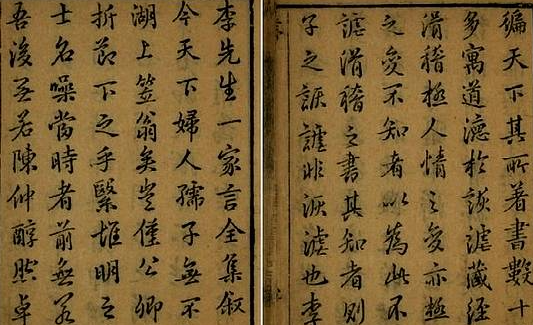 李先生一家言全集叙
今天下婦人孺子無不
湖上笠翁矣豈僅公卿
折節下之乎繄惟明之
士名噪當時者前無若
吾後無若陳仲醇然卓
徧天下其所著書數十
多寓道德於詼諧藏經
滑稽極人情之變亦極
之變不知者以為此不
諧滑稽之書其知者則
子之詼諧非詼諧也李